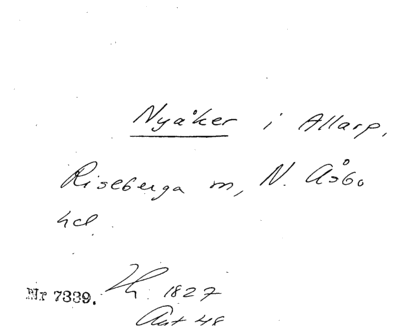 Nyåker i Allarp,
Riseberga sn, N. Åsbo
hd.
Nr 7339. 1827
Aut 48